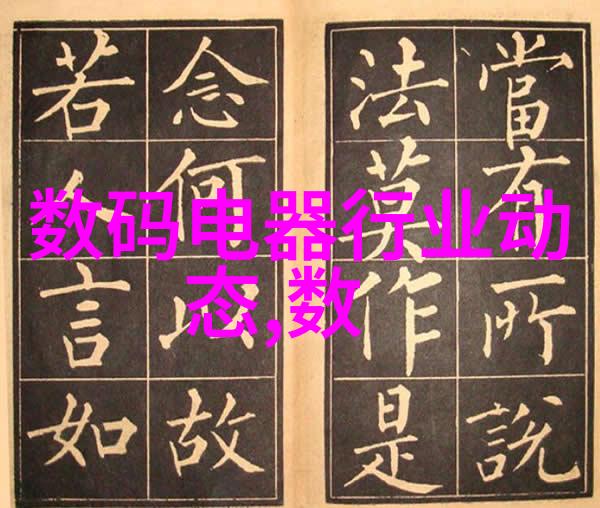 数码电器行业动
态,数
當有所說
法莫作是
念何以故
若人言如